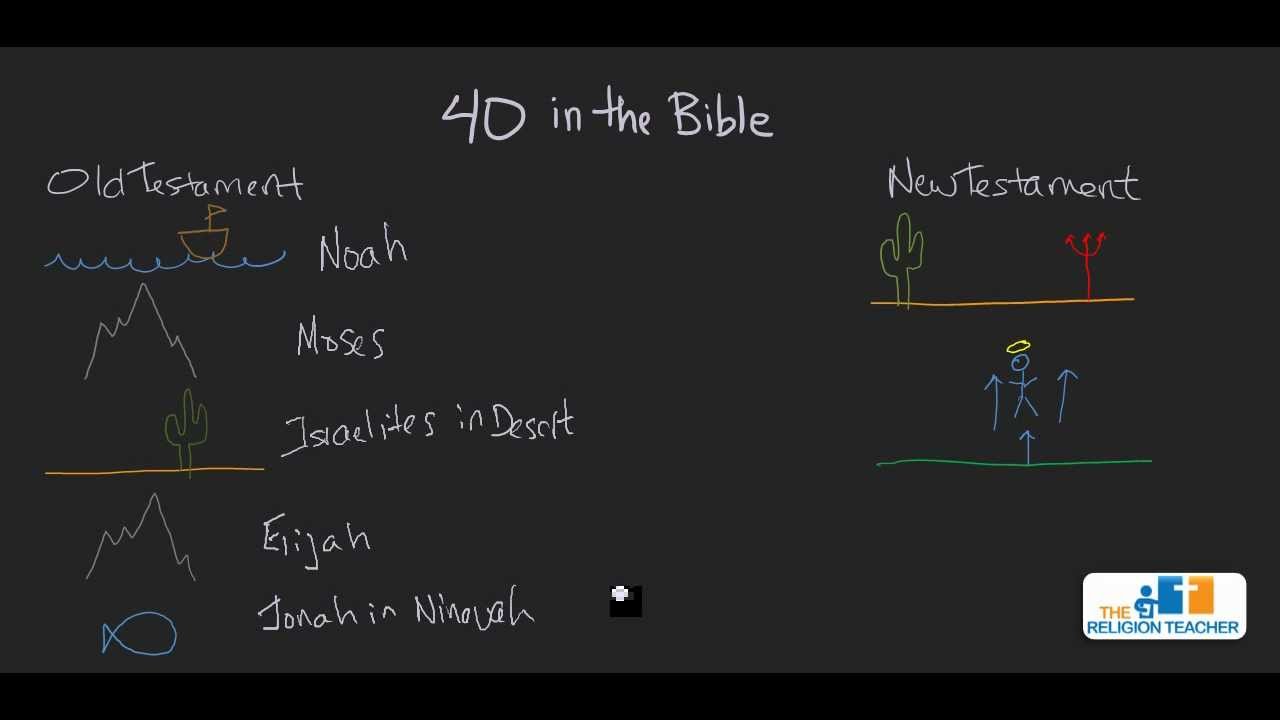 40 in the Bible
Old Testament
New Testament
Noah
Moses
Israelites in Desert
Elijah
Jonah in Ninevah
THE
RELIGION TEACHER